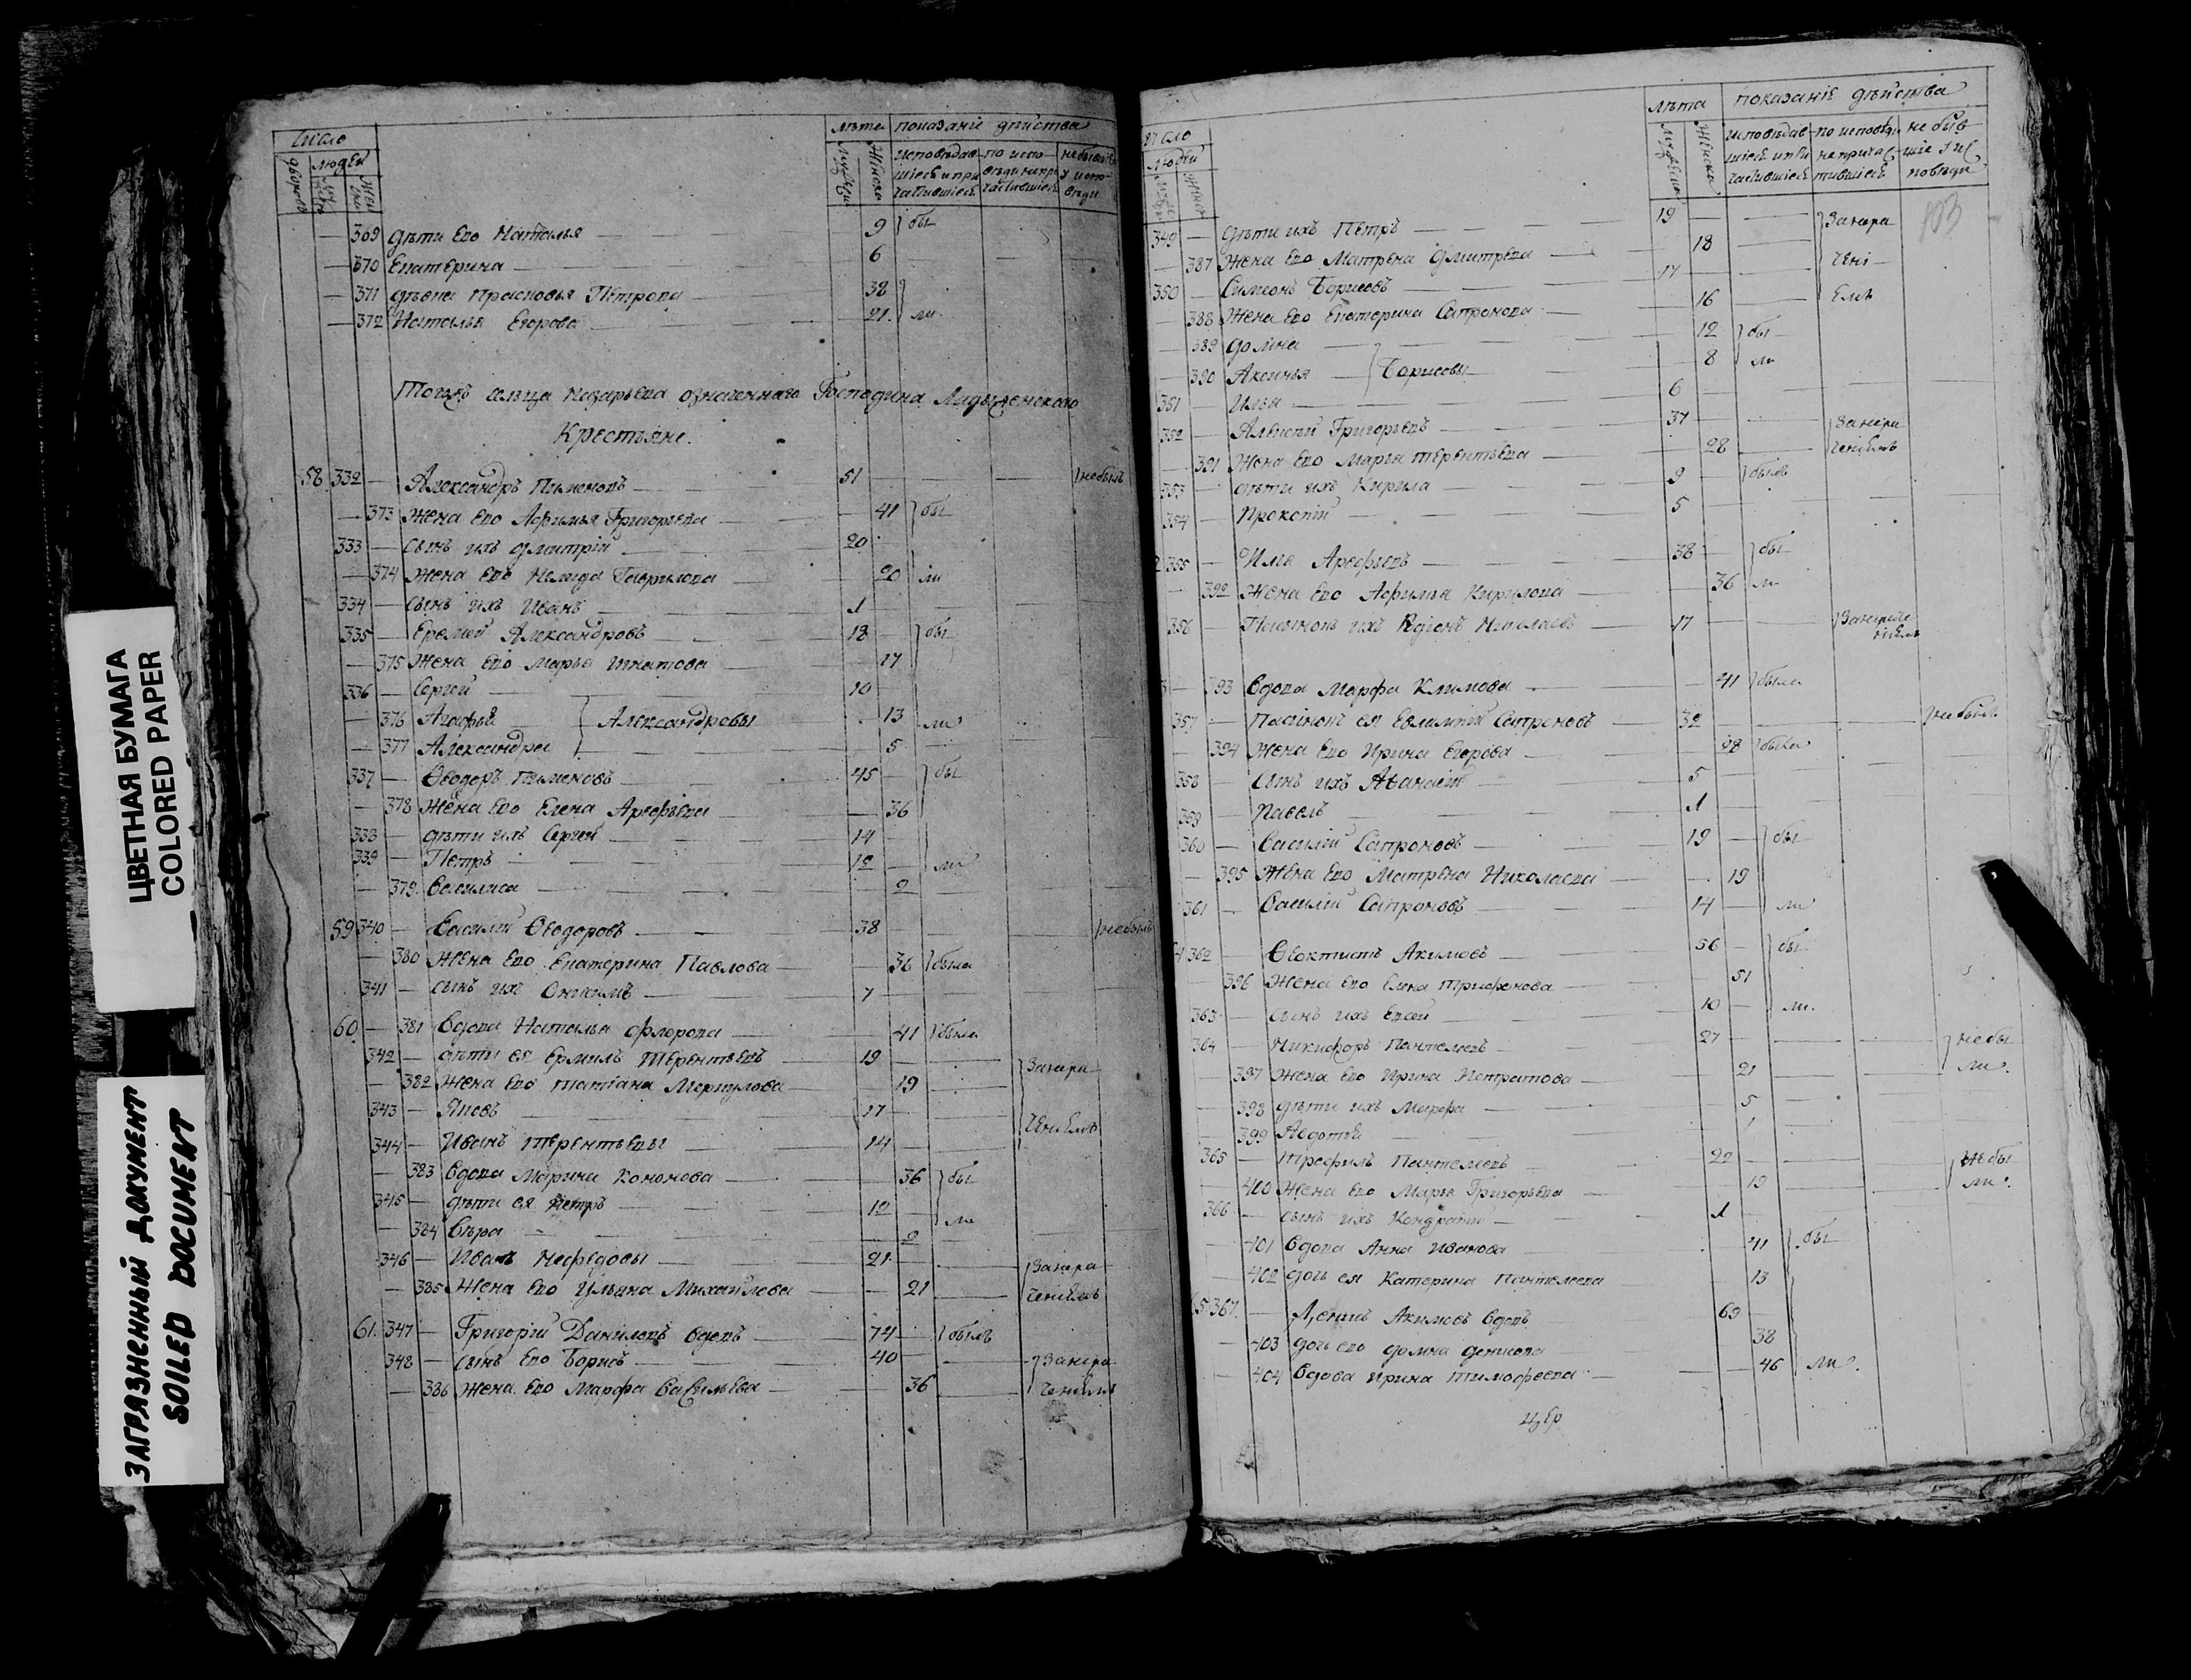 ЦВЕТНАЯ БУМАГА
COLORED PAPER
ЗАГРАЗНЕННЫЙ ДОКУМЕНТ
SOILED DOCUMENT
Число
людей
лѣта показаніе дѣйства
исповѣдав- по испо- небывшіе
шіесѧ и при вѣди непри у испо-
частившіесѧ частившіесѧ вѣди
— 369 дѣти его Наталья — 9 бы
— 370 Екатерина — 6
— 371 дѣвка Прасковья Петрова — 38
— 372 Наталья Егорова — 21 ли
Тогожъ сельца Назарьева означеннаго Господина
Крестьяне.
58 332 — Александръ Пименовъ — 51 небылъ
— 373 Жена его Афимья Григорьева — 41 бы
333 — сынъ ихъ Дмитрій — 20
— 374 Жена его Гаврилова — 20 ли
334 — сынъ ихъ Иванъ — 1
335 — Еремей Александровъ — 18 бы
— 375 Жена его Марья Игнатова — 17
336 — Сергей — 10
— 376 Агафья — Александровы 13 ли
— 377 Александра — 5
337 — Ѳеодоръ Пименовъ — 45 бы
— 378 Жена его Елена Арефьева — 36
338 — дѣти ихъ Сергей — 14
339 — Петръ — 12 ли
— 379 Василиса — 2
59 340 — Василій Ѳеодоровъ — 38 небылъ
— 380 Жена его Екатерина Павлова — 36 была
341 — сынъ ихъ — 7
60 — 381 вдова Наталья Флорова — 41 была
342 — дѣти ея Ермилъ Терентьевъ — 19 Занера
— 382 Жена его Татіана Меркулова — 19
343 — Яковъ — 17
344 — Иванъ Терентьевы 14 ченіемъ
— 383 вдова Марина Кононова — 36 бы
345 — дѣти ея Петръ — 12
— 384 Вѣра — 2 ли
346 — Иванъ Нефедовы — 21 Занера
— 385 Жена его Ульяна Михайлова — 21 ченіемъ
61 347 — Григорій Даниловъ вдовъ — 74 былъ
348 — сынъ его Борисъ — 40 Занера
— 386 Жена его Марфа Васильева — 36 ченіемъ
число
людей
лѣта показаніе дѣйства
исповѣдав- по исповѣди не быв-
шіесѧ и при непричас- шіе у ис
частившіесѧ тившіесѧ повѣди
103
349 — дѣти ихъ Петръ — 19 Занера
— 387 Жена его Матрена Дмитрева — 18 чені
350 — Симеонъ Борисовъ — 17
— 388 Жена его Екатерина Сапронова — 16 емъ
— 389 Домна — 12 бы
— 390 Аксинья — Борисовы 8 ли
351 — Илья — 6
352 — Алексей Григорьевъ — 37 Занера
— 391 Жена его Марья Терентьева — 28 ченіемъ
353 — дѣти ихъ Кирила — 9 былъ
354 — Прокопій — 5
355 — Илья Арефьевъ — 38 бы
— 392 Жена его Афимья Кирилова — 36 ли
356 — Пасынокъ ихъ Родіонъ Николаевъ — 17 Занераче
ніемъ
— 393 вдова Марфа Климова — 41 была
357 — Пасынокъ ея Евлампій Сапроновъ — 32 небылъ
— 394 Жена его Ирина Егорова — 28 была
358 — сынъ ихъ Аѳанасій — 5
359 — Павелъ — 1
360 — Василій Сапроновъ — 19 бы
— 395 Жена его Матрена Николаева — 19
361 — Василій Сапроновъ — 14 ли
362 — Ѳеоктистъ Акимовъ — 56 бы
— 396 Жена его Елена Трифонова — 51
363 — сынъ ихъ Евсей — 10 ли
364 — Никифоръ Пантелеевъ — 27 небы
— 397 Жена его Ирина Истратова — 21 ли
— 398 дѣти ихъ Марфа — 5
— 399 Авдотья — 1
365 — Трофимъ Пантелеевъ — 22 небы
— 400 Жена его Марья Григорьева — 19 ли
366 — сынъ ихъ Кондратій — 1
— 401 вдова Анна Иванова 41 бы
— 402 дочь ея Катерина Пантелеева 13
367 — Денисъ Акимовъ вдовъ 69
— 403 дочь его Домна Денисова 38
— 404 вдова Ирина Тимофеева — 46 ли